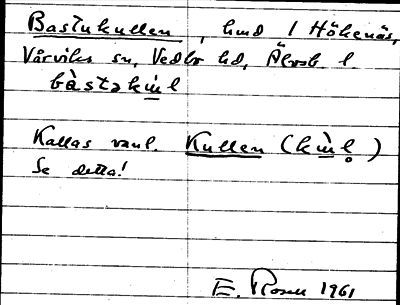 Bastukullen, hmd i Hökenäs,
Vårviks sn, Vedbo hd, Älvsb. l.
bàstəkụl
Kallas vanl. Kullen (kụl̥)
Se detta!
E. Rosell 1961